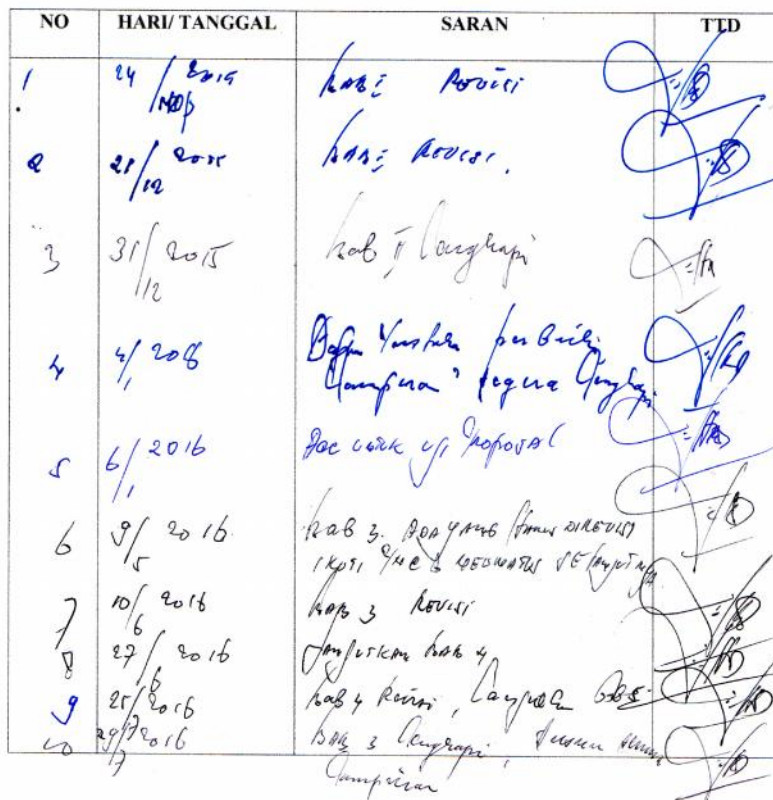 NO HARI/ TANGGAL SARAN TTD
1 24/ 2015 BAB I Revisi
2 21/12 2015 BAB I Revisi.
3 31/12 2015 bab II Lengkapi
4 4/1 2016 Daftar Pustaka perbaiki
Lampiran" segera lengkapi
5 6/1 2016 Acc untuk uji Proposal
6 9/5 2016 bab 3. ADA YANG HARUS DIREVISI
7 10/6 2016 BAB 3 Revisi
8 27/6 2016 Lanjutkan BAB 4
9 25/7 2016 bab 4 Revisi, Lanjutkan BAB 5
10 29/7 2016 BAB 3 lengkapi, susun semua
Lampiran